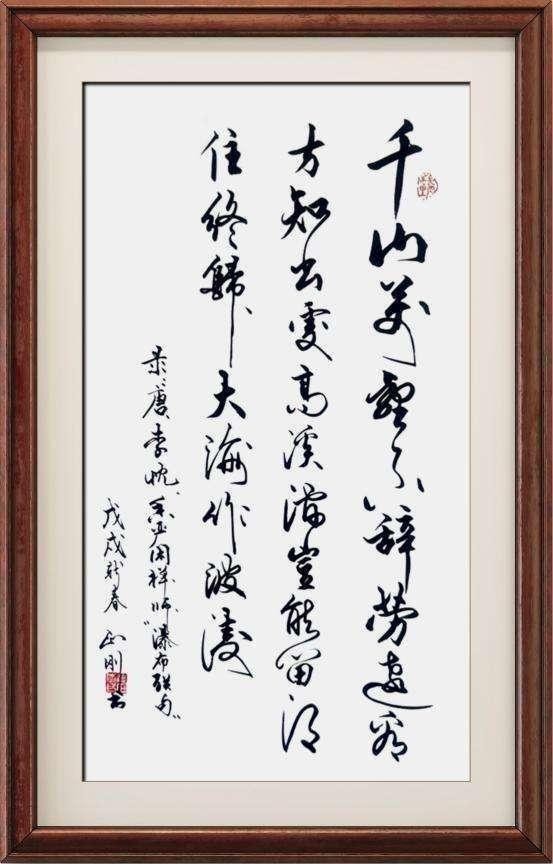 千山萬壑不辞勞遠看
方知出處高溪澗豈能留得
住終歸大海作波濤
录唐李忱、香严闲禅师"瀑布联句"
戊戌新春 正刚 书